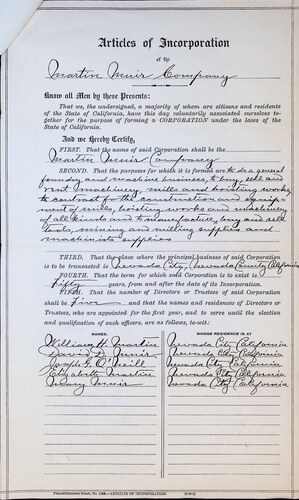 Articles of Incorporation
of the
Martin Muir Company
Know all Men by these Presents:
That we, the undersigned, a majority of whom are citizens and residents
of the State of California, have this day voluntarily associated ourselves to-
gether for the purpose of forming a CORPORATION under the laws of the
State of California.
And we Hereby Certify,
FIRST. That the name of said Corporation shall be the
Martin Muir Company
SECOND. That the purposes for which it is formed are to do a general
foundry and machine business, to buy, sell and
rent machinery, mills and hoisting works
to contract for the construction and equip-
ment of mills, hoisting works and machinery
of all kinds and to manufacture, buy and sell
tools, mining and milling supplies and
machinists supplies
THIRD. That the place where the principal business of said Corporation
is to be transacted is Nevada City, Nevada County California
FOURTH. That the term for which said Corporation is to exist is
Fifty years, from and after the date of its Incorporation.
FIFTH. That the number of Directors or Trustees of said Corporation
shall be Five and that the names and residences of Directors or
Trustees, who are appointed for the first year, and to serve until the election
and qualification of such officers, are as follows, to-wit:
NAMES. WHOSE RESIDENCE IS AT
William H. Martin Nevada City California
David D. Muir Nevada City California
Joseph G. O'Neill Nevada City California
Elizabeth Martin Nevada City California
Mary Muir Nevada City California
ARTICLES OF INCORPORATION.